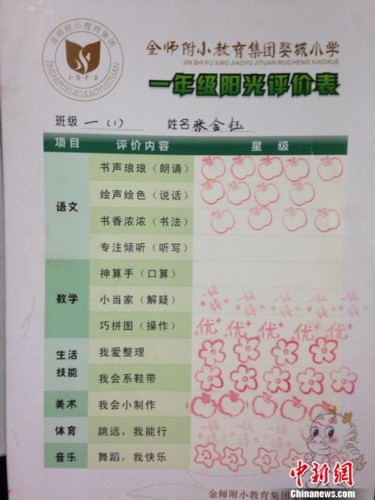 金师附小教育集团
JINSHIFUXIAOJIAOYUJITUAN
J·S·F·X
金师附小教育集团婺城小学
JIN SHI FU XIAO JIAOYU JITUAN WUCHENG XIAOXUE
一年级阳光评价表
班级 一(1) 姓名 张含钰
项目 评价内容 星级
语文 书声琅琅（朗诵）
绘声绘色（说话）
书香浓浓（书法）
专注倾听（听写）
数学 神算手（口算）
小当家（解疑）
巧拼图（操作） 优 优 优 优 优
生活技能 我爱整理
我会系鞋带
美术 我会小制作
体育 跳远，我能行
音乐 舞蹈，我快乐
金师附小教育集团
中新网
WWW.CHINANEWS.COM